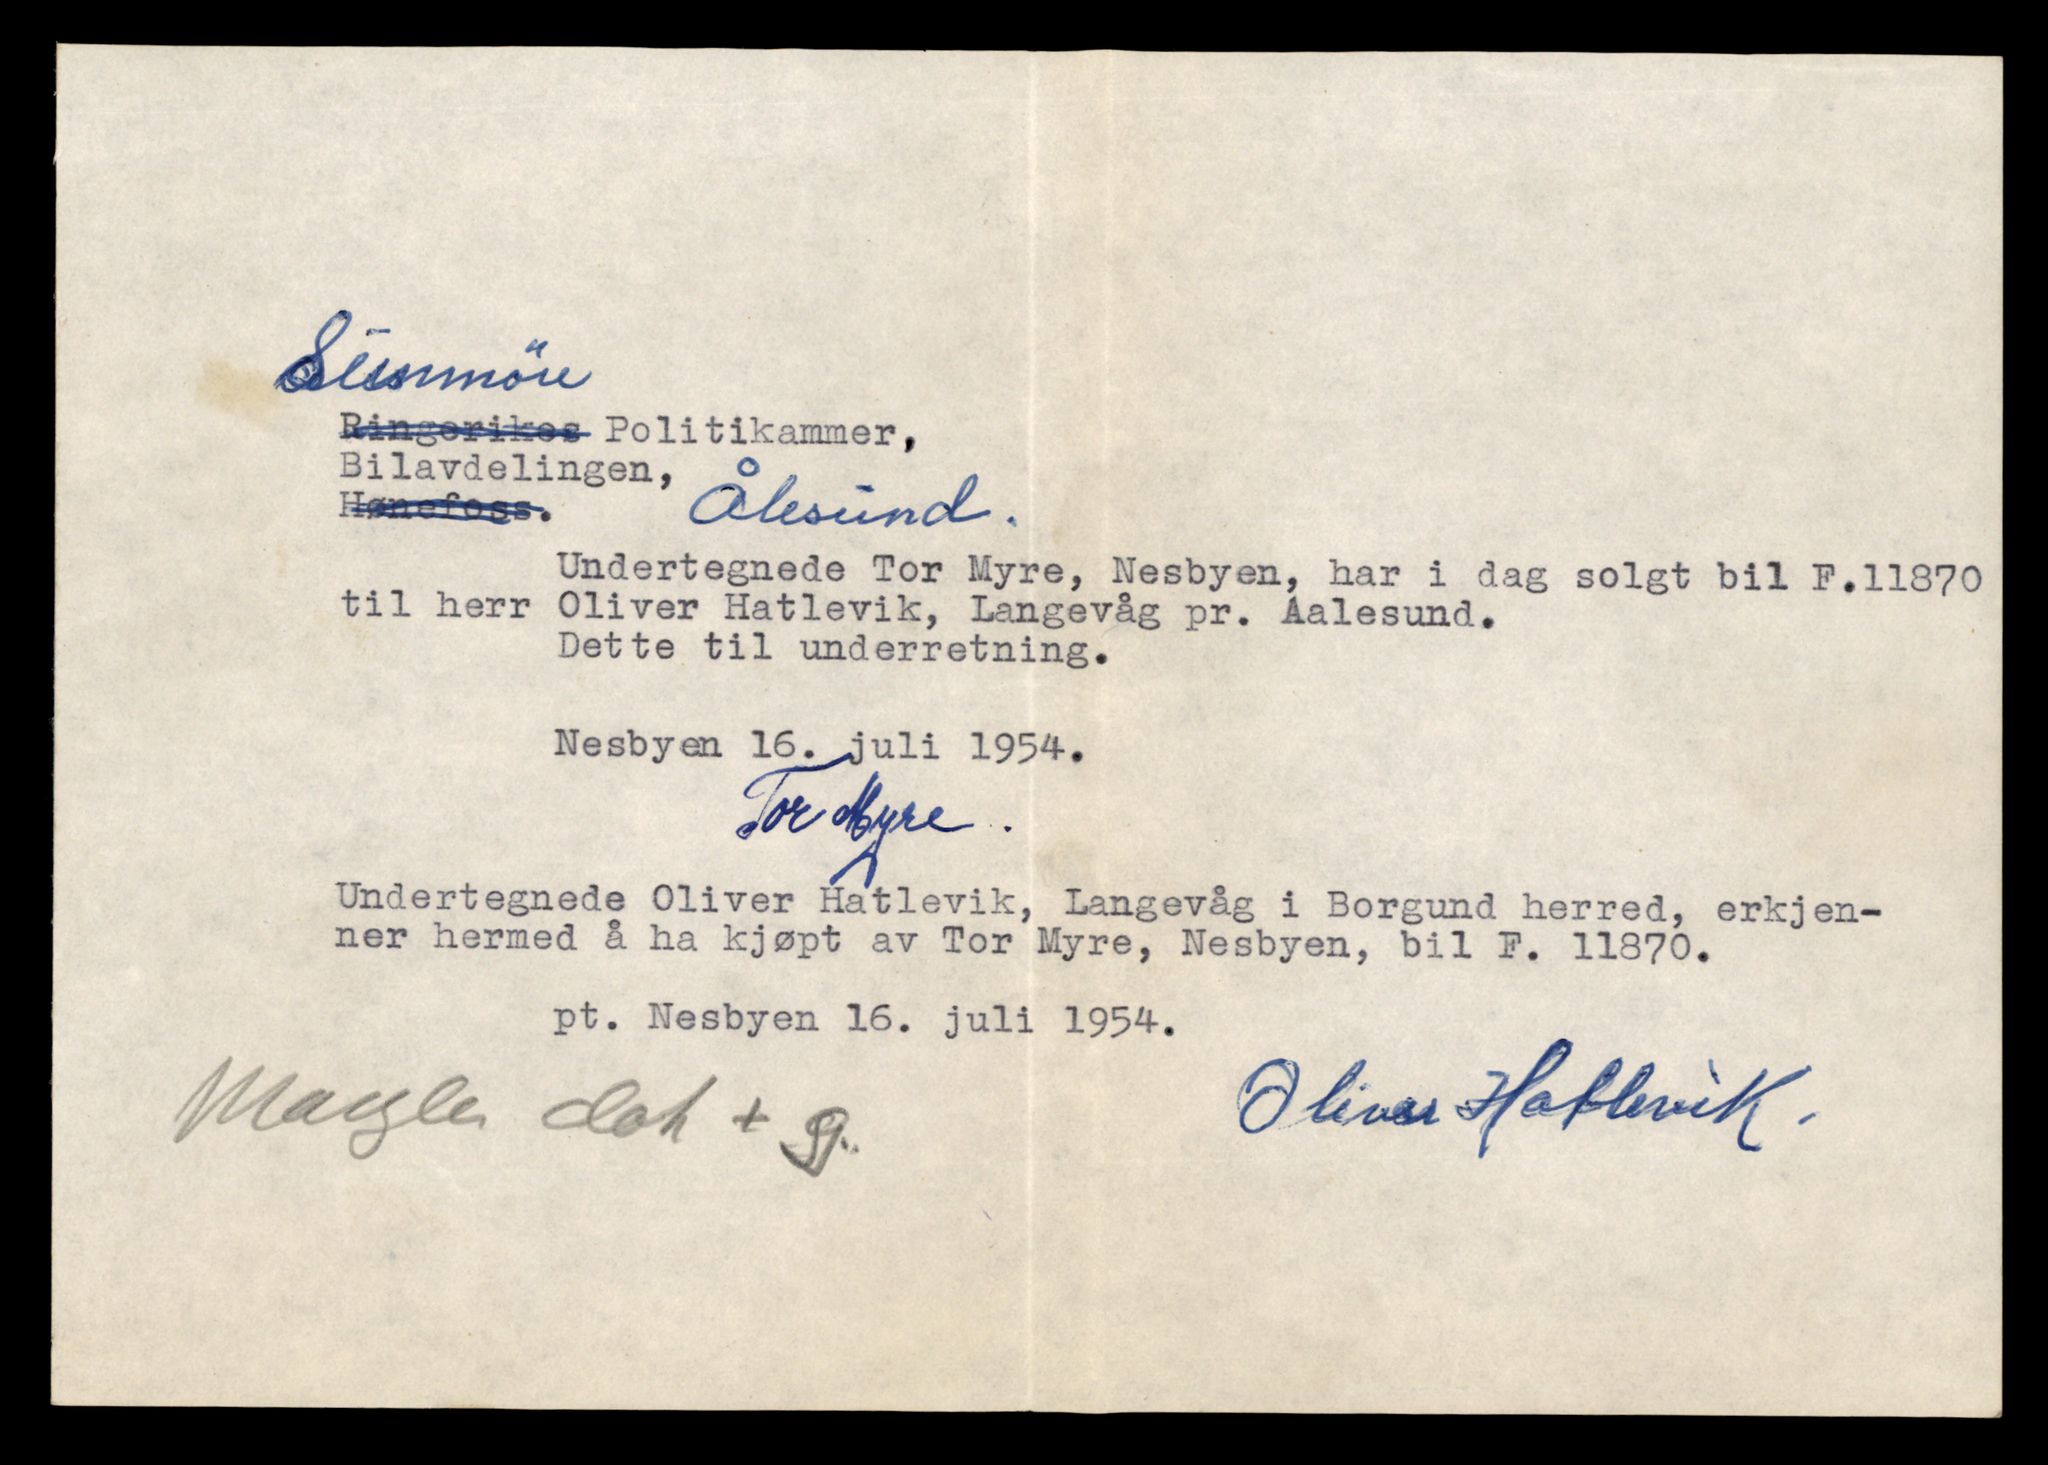 Sunnmöre
Ringerikes Politikammer,
Bilavdelingen,
Hønefoss. Ålesund.
Undertegnede Tor Myre, Nesbyen, har i dag solgt bil F.11870
til herr Oliver Hatlevik, Langevåg pr. Aalesund.
Dette til underretning.
Nesbyen 16. juli 1954.
Tor Myre.
Undertegnede Oliver Hatlevik, Langevåg i Borgund herred, erkjen-
ner hermed å ha kjøpt av Tor Myre, Nesbyen, bil F. 11870.
pt. Nesbyen 16. juli 1954.
Oliver Hatlevik.
Mangler dok + g.